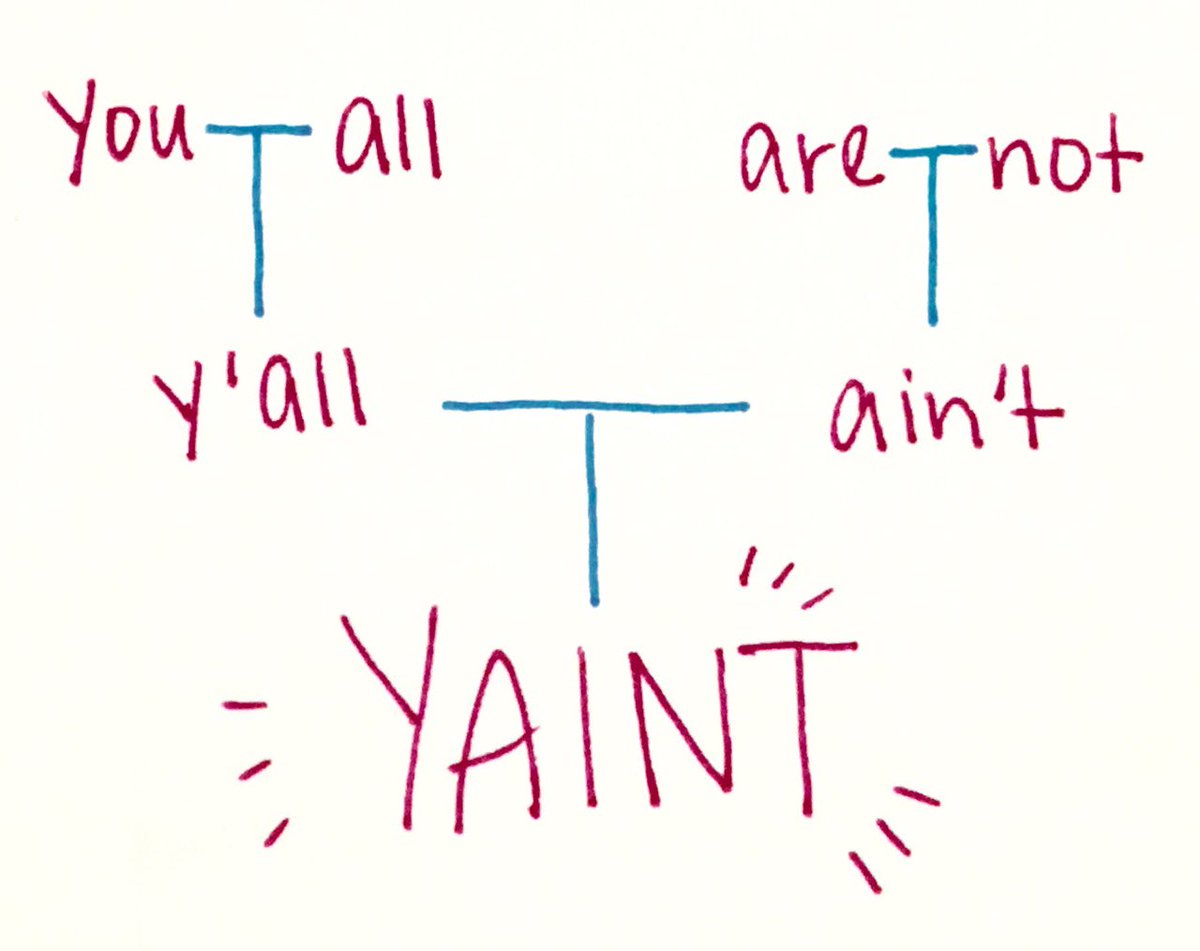 you all are not
y'all ain't
YAINT